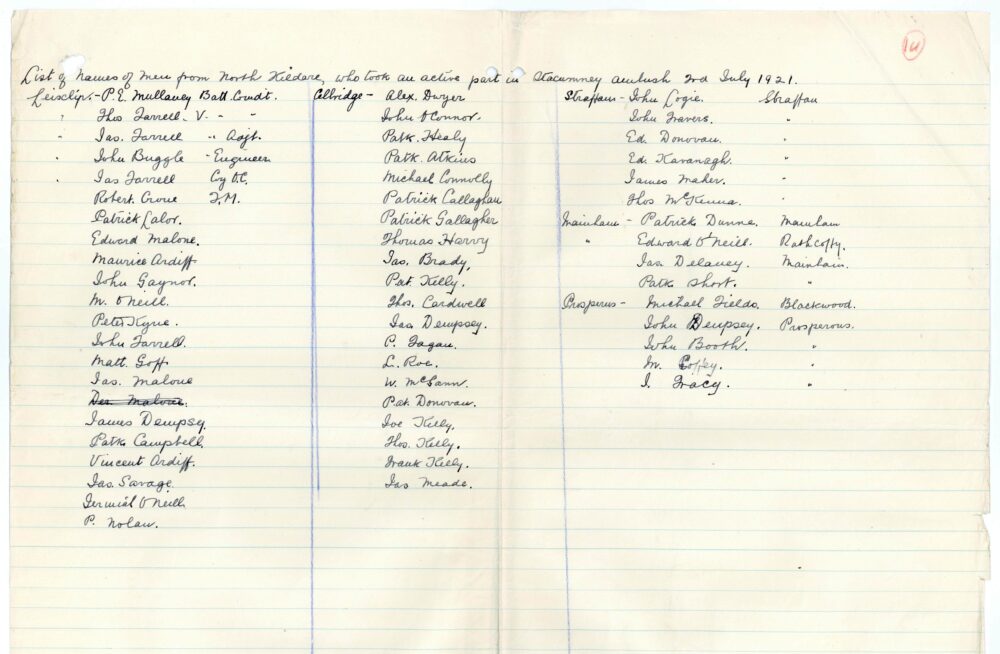 14
List of Names of Men from North Kildare, who took an active part in Stacumney ambush 3rd July 1921.
Leixlip - P.E. Mullaney Batt. Comdt.
" Thos Farrell - V. " "
" Jas. Farrell " Adjt.
" John Buggle - Engineer
" Jas Farrell Cy O.C.
Robert Crone Q.M.
Patrick Lalor.
Edward Malone.
Maurice Ardiff
John Gaynor.
M. O'Neill.
Peter Kyne.
John Farrell.
Matt. Goff
Jas. Malone
Des. Malone.
James Dempsey.
Patk Campbell.
Vincent Ardiff.
Jas. Savage.
Jermiah O'Neill
P. Nolan.
Cellbridge - Alex. Dwyer
John O'Connor.
Patk. Healy
Patk. Atkins
Michael Connolly
Patrick Callaghan
Patrick Gallagher
Thomas Harvy
Jas. Brady.
Pat. Kelly.
Thos. Cardwell
Jas Dempsey.
C. Fagan.
L. Roe.
W. McCann.
Pat. Donovan.
Joe Kelly.
Thos. Kelly.
Frank Kelly.
Jas Meade.
Straffan - John Logie. Straffan
John Travers. "
Ed. Donovan. "
Ed. Kavanagh. "
James Maher. "
Thos McKenna. "
Mainham - Patrick Dunne. Mainham
" Edward O'Neill. Rathcoffy.
Jas Delaney. Mainham.
Patk Short. "
Prosperus - Michael Fields. Blackwood.
John Dempsey. Prosperous.
John Booth. "
M. Coffey. "
J. Tracy. "